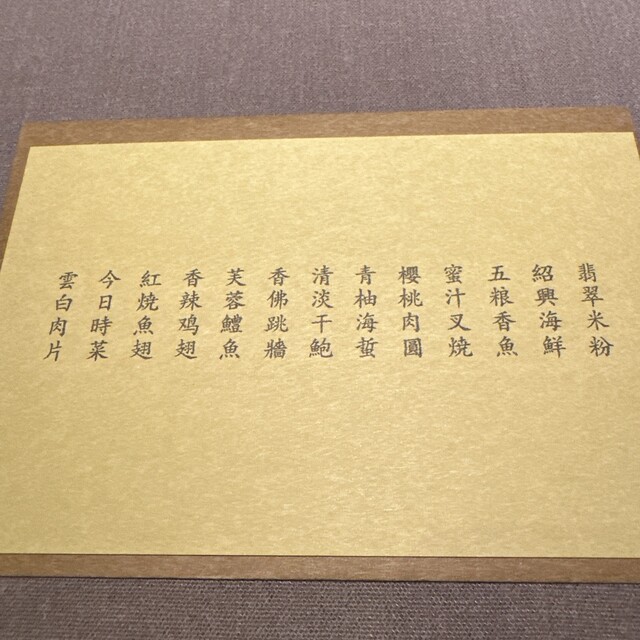 翡翠米粉
紹興海鮮
五粮香魚
蜜汁叉燒
櫻桃肉圓
青柚海蜇
清淡干鮑
香佛跳牆
芙蓉鱧魚
香辣鸡翅
紅燒魚翅
今日時菜
雲白肉片